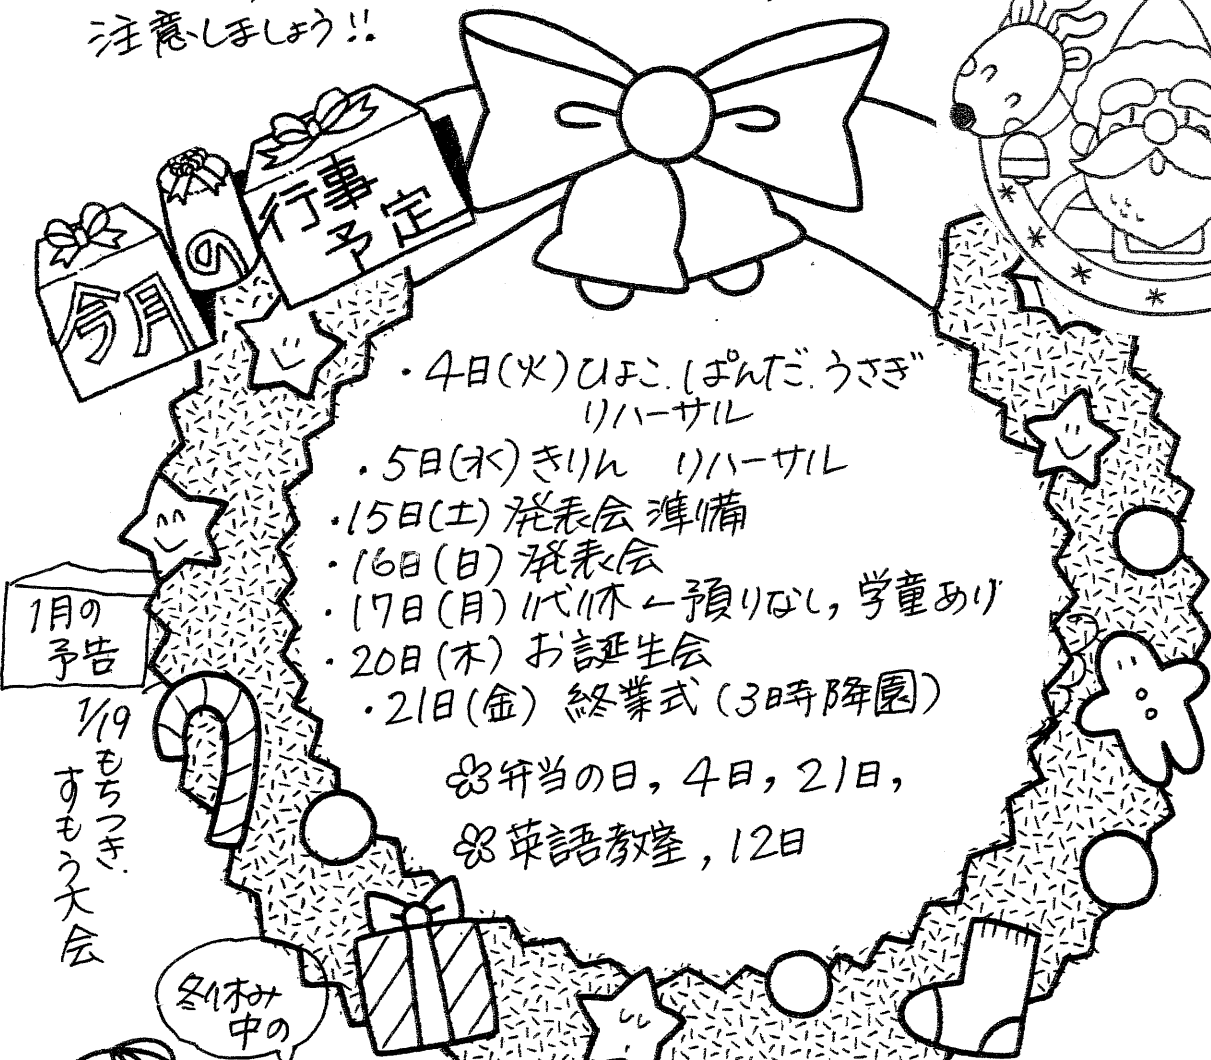 注意しましょう!!
今月の行事予定
・4日(火)ひよこ.ぱんだ.うさぎ
リハーサル
・5日(水)きりん リハーサル
・15日(土)発表会準備
・16日(日)発表会
・17日(月)代休←預りなし,学童あり
・20日(木)お誕生会
・21日(金)終業式(3時降園)
弁当の日,4日,21日,
英語教室,12日
1月の
予告
1/19
もちつき.
すもう大会
冬休み
中の